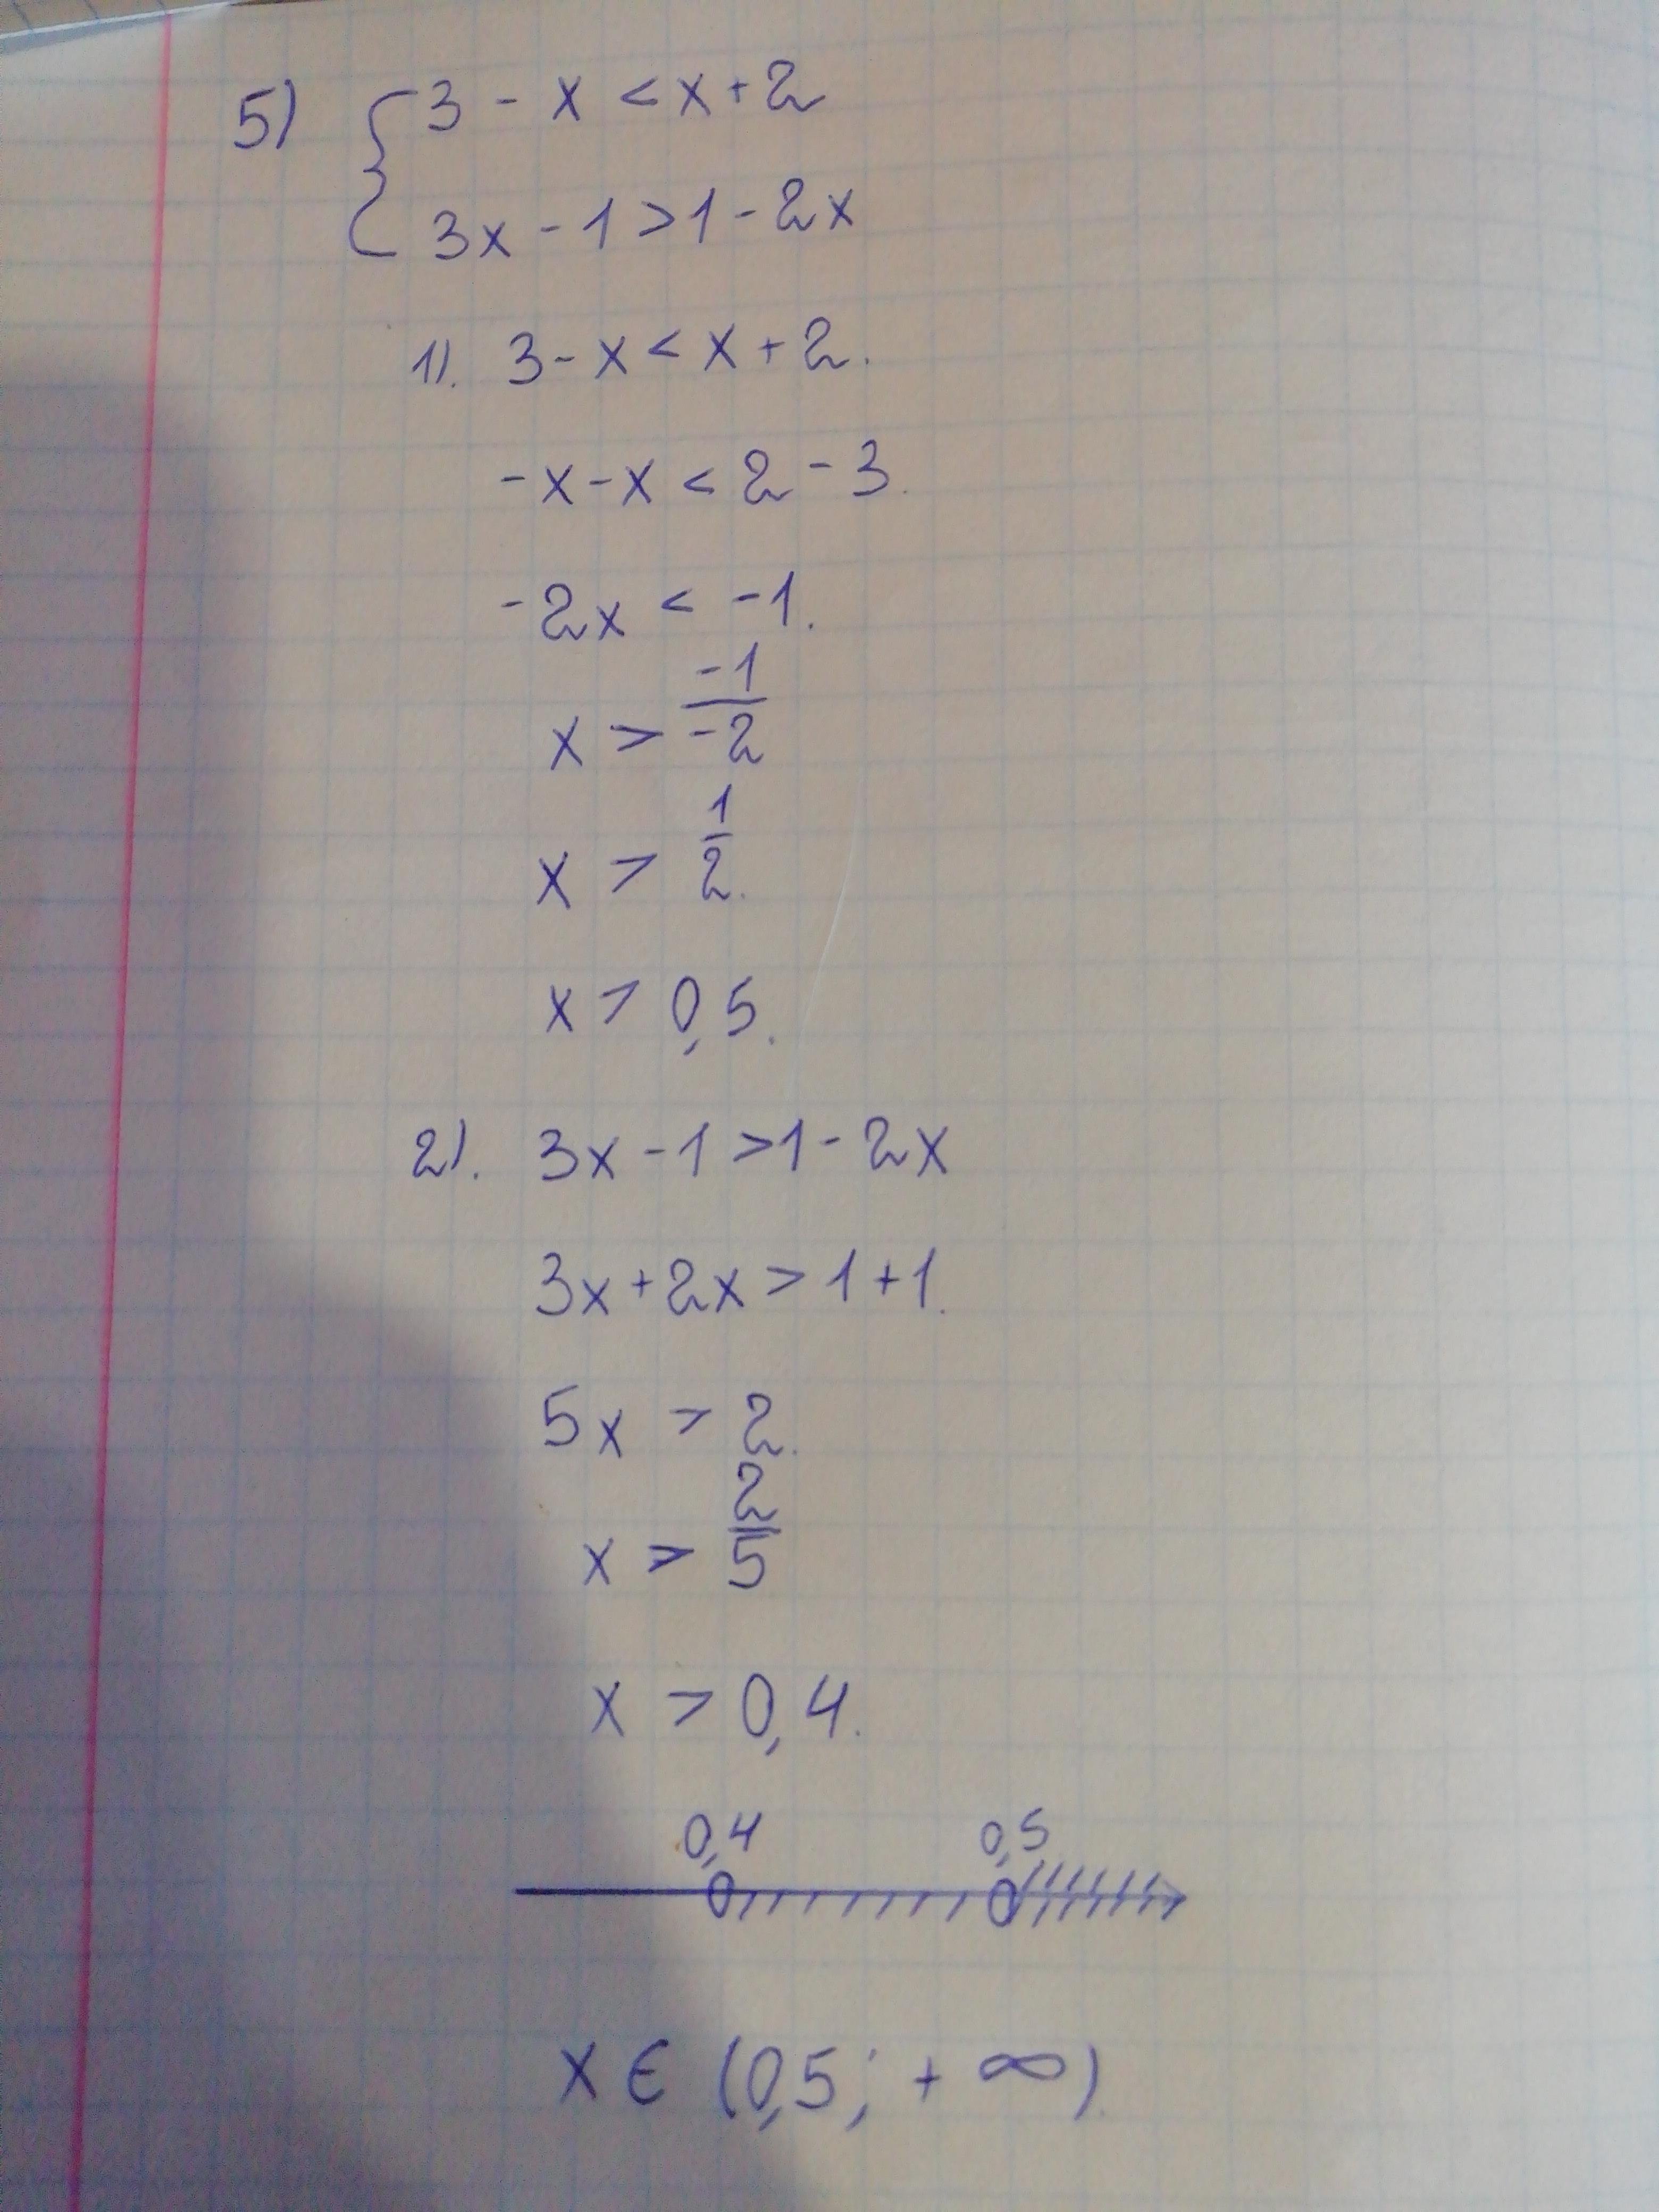 5) { 3 - x < x + 2
3x - 1 > 1 - 2x
1). 3 - x < x + 2.
-x - x < 2 - 3.
-2x < -1.
x > -1/-2
x > 1/2.
x > 0,5.
2). 3x - 1 > 1 - 2x
3x + 2x > 1 + 1.
5x > 2.
x > 2/5
x > 0,4.
0,4 0,5
x ∈ (0,5; + ∞).